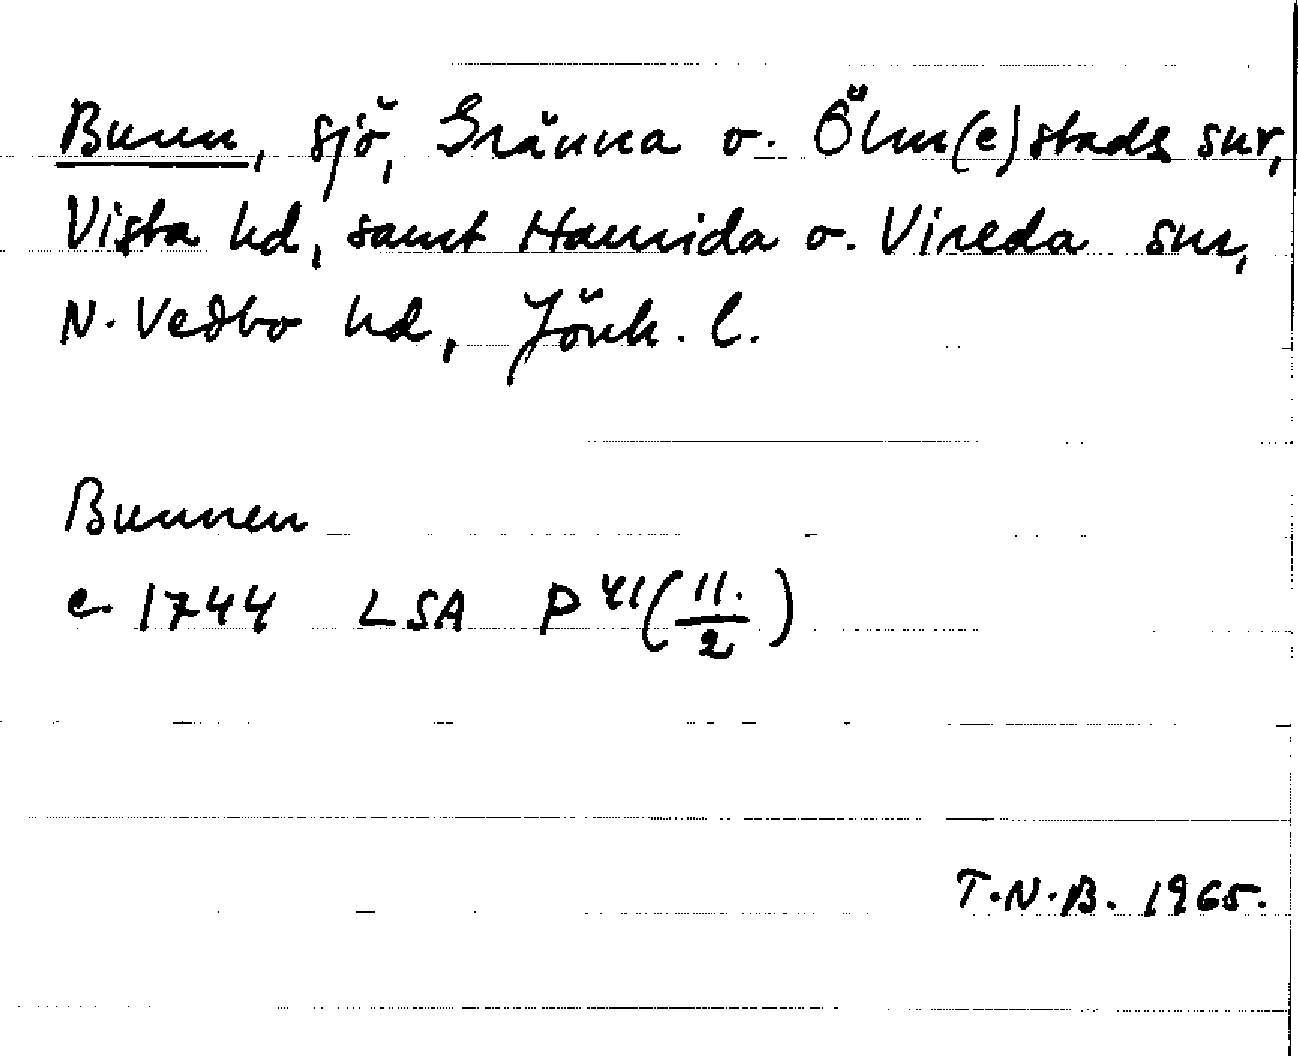 Bunn, sjö, Gränna o. Ölm(e)stads snr,
Vista hd, samt Haurida o. Vireda snr,
N. Vedbo hd, Jönk. l.
Bunnen
c. 1744 LSA P 41 (11./2)
T.N.B. 1965.